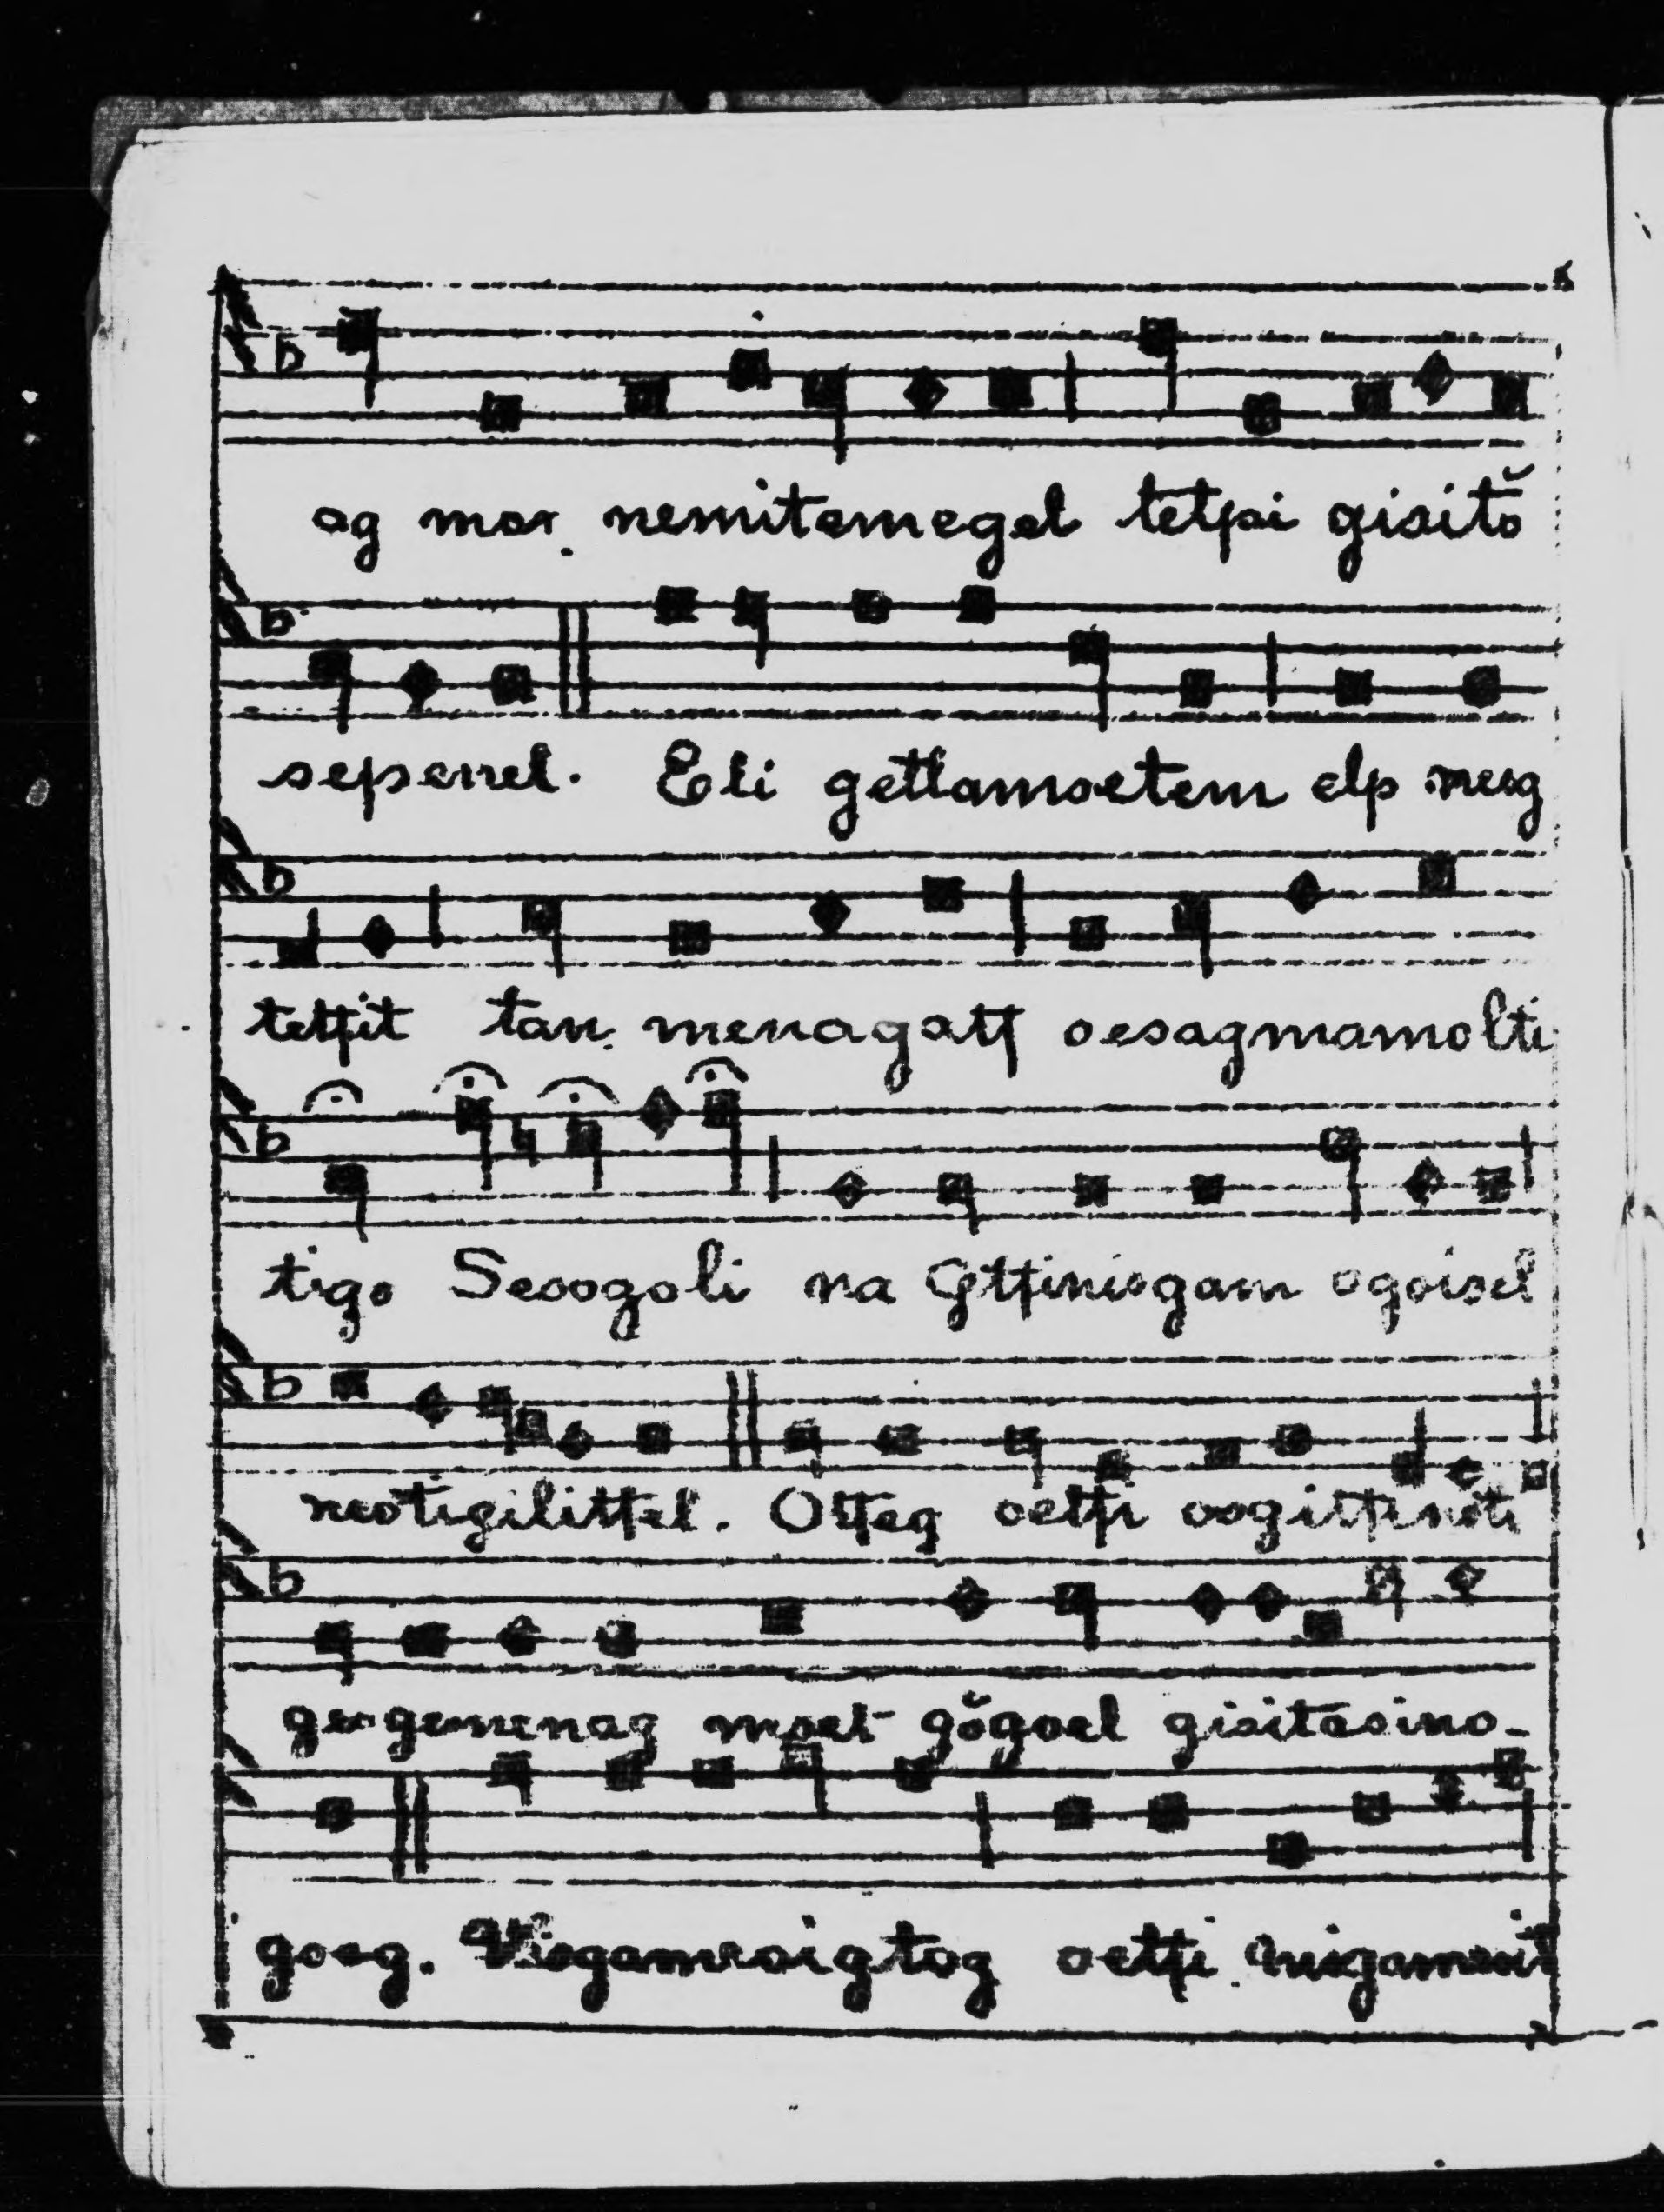 ag mor nemitemegel tetpi gisitŏ
sepenel. Eli getlamoetem elp neog
tetfit tan menagatf oesagmamolti
tigo Seoogoli na Gtfinisgam egoisel
neotigilitfel. Otfeg oetfi oogitfinoti
gegemenag moel gŏgoel gisitasino-
goeg. oetfi